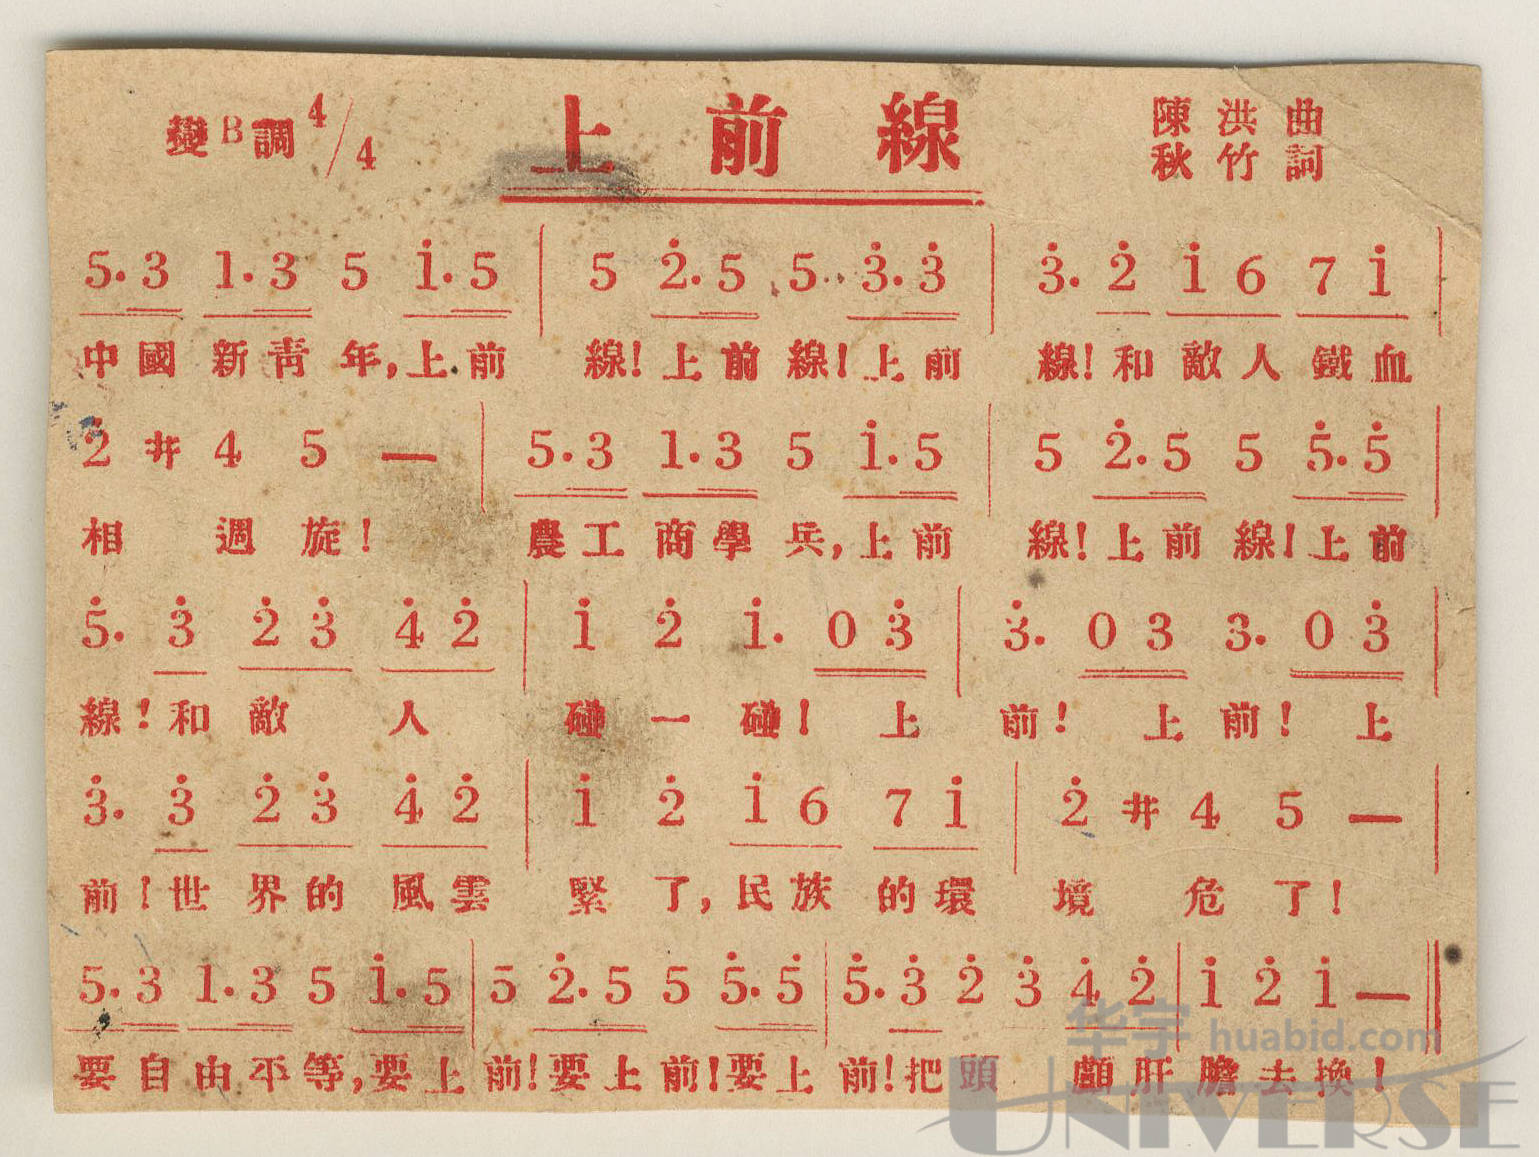 變B調 4/4 上前線 陳洪曲
秋竹詞
5.3 1.3 5 i.5 | 5 2̇.5 5.. 3̇.3̇ | 3̇. 2̇ i 6 7 i |
中國新青年,上前線!上前線!上前線!和敵人鐵血
2̇ #4 5 — | 5.3 1.3 5 i.5 | 5 2̇.5 5 5̇.5̇ |
相週旋!農工商學兵,上前線!上前線!上前
5̇. 3̇ 2̇ 3̇ 4̇ 2̇ | i 2̇ i. 0 3̇ | 3̇. 0 3 3. 0 3̇ |
線!和敵人碰一碰!上前!上前!上
3̇. 3̇ 2̇ 3̇ 4̇ 2̇ | i 2̇ i 6 7 i | 2̇ #4 5 — |
前!世界的風雲緊了,民族的環境危了!
5.3 1.3 5 i.5 | 5 2̇.5 5 5̇.5̇ | 5̇.3̇ 2̇ 3̇ 4̇ 2̇ | i 2̇ i — ‖
要自由平等,要上前!要上前!要上前!把頭顱肝膽去換!
华宇 huabid.com
UNIVERSE